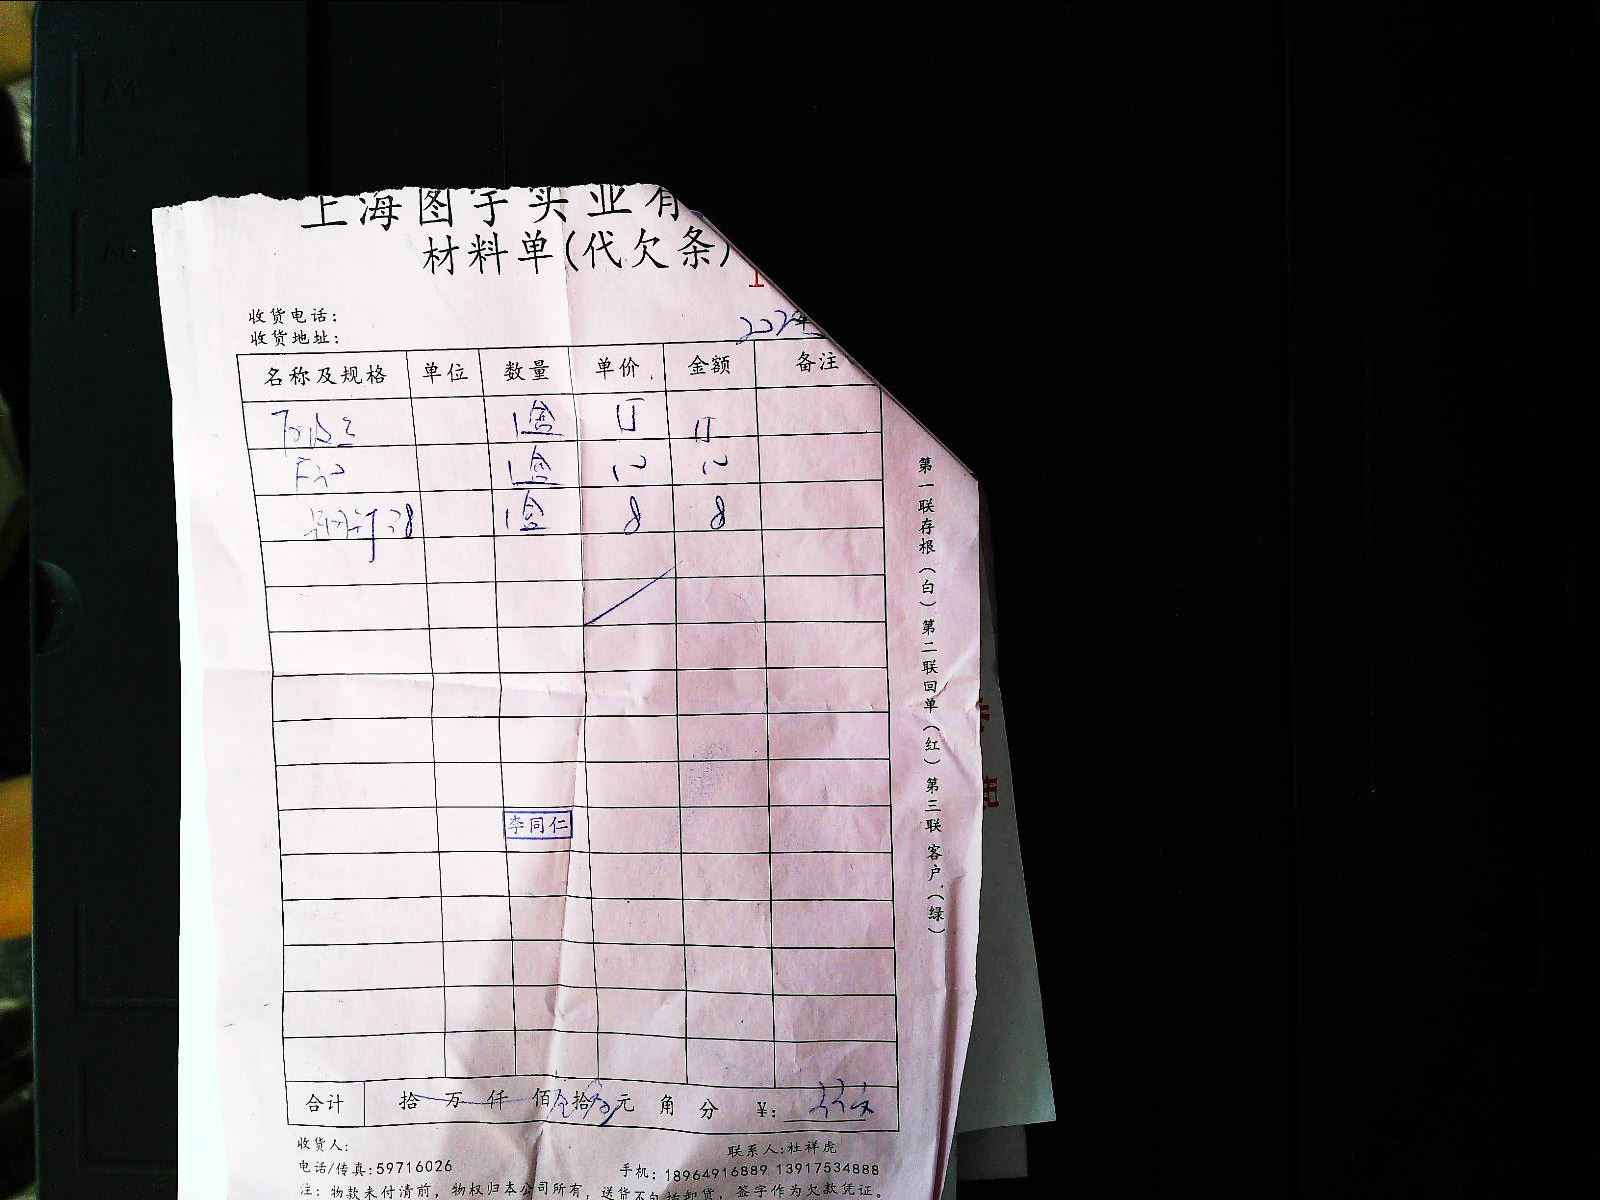 上海图宇实业有
材料单(代欠条)
1
收货电话:
收货地址:
名称及规格 单位 数量 单价 金额 备注
1盒
1盒 12 12
1盒 8 8
李同仁
合计 拾 万 仟 佰 拾 元 角 分 ¥:
收货人: 联系人:杜祥虎
电话/传真:59716026 手机:18964916889 13917534888
注:物款未付清前,物权归本公司所有,送货不包括卸货,签字作为欠款凭证。
第一联存根(白)第二联回单(红)第三联客户(绿)